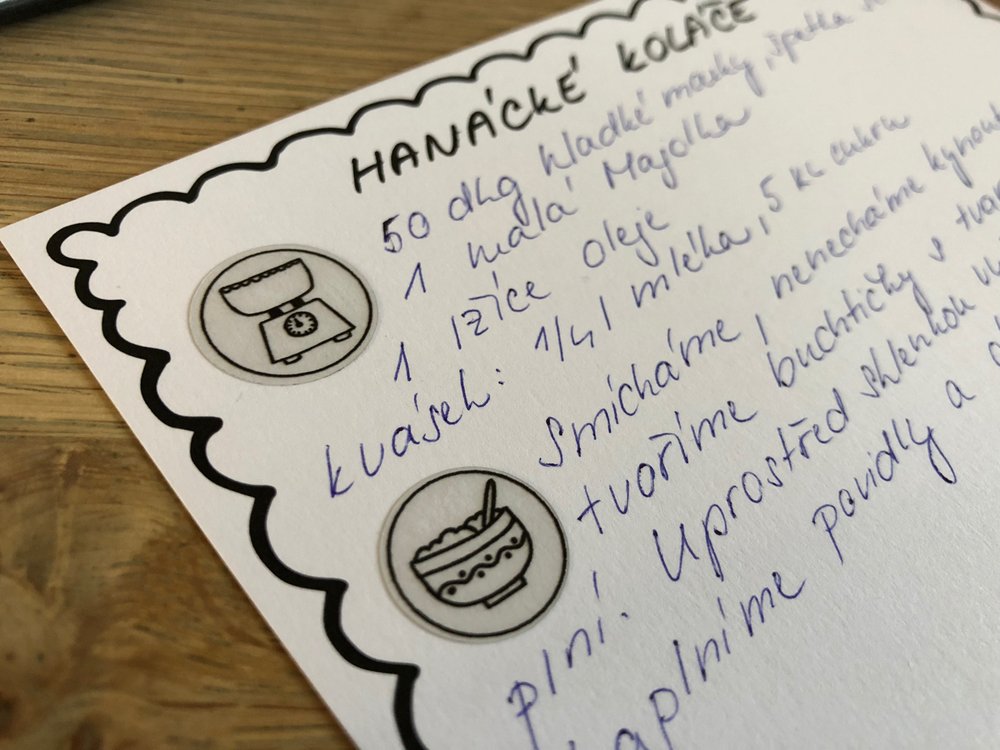 HANÁCKÉ KOLÁČE
50 dkg hladké mouky, špetka
1 malá Majolka
1 lžíce oleje
kvásek: 1/4 l mléka, 5 kc cukru
Smícháme, nenecháme kynout
tvoříme buchtičky s
plní. Uprostřed sklenkou
povidly a